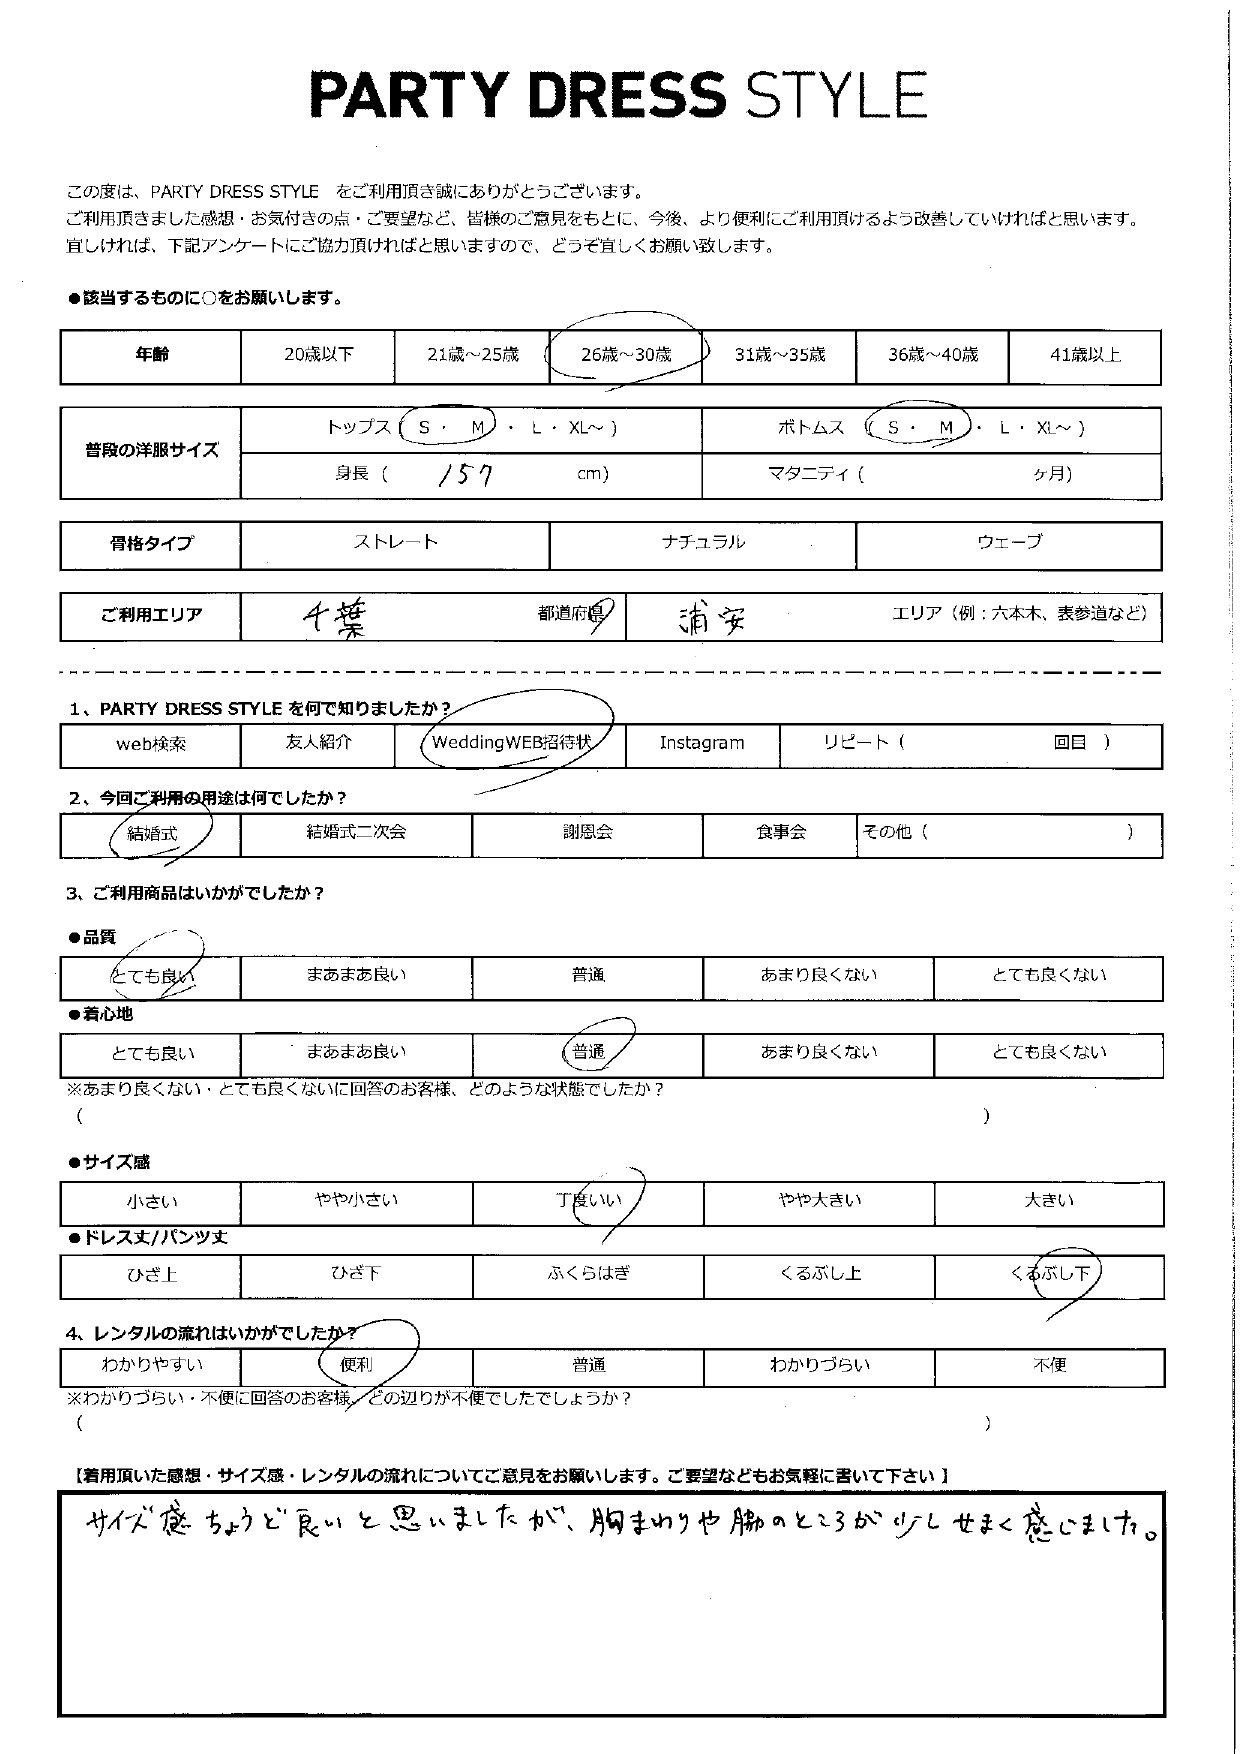 PARTY DRESS STYLE
この度は、PARTY DRESS STYLE をご利用頂き誠にありがとうございます。
ご利用頂きました感想・お気付きの点・ご要望など、皆様のご意見をもとに、今後、より便利にご利用頂けるよう改善していければと思います。
宜しければ、下記アンケートにご協力頂ければと思いますので、どうぞ宜しくお願い致します。
●該当するものに○をお願いします。
年齢 20歳以下 21歳～25歳 26歳～30歳 31歳～35歳 36歳～40歳 41歳以上
普段の洋服サイズ トップス ( S ・ M ・ L ・ XL～ ) ボトムス ( S ・ M ・ L ・ XL～ )
身長 ( 157 cm) マタニティ ( ヶ月)
骨格タイプ ストレート ナチュラル ウェーブ
ご利用エリア 千葉 都道府県 浦安 エリア（例：六本木、表参道など）
1、PARTY DRESS STYLE を何で知りましたか？
web検索 友人紹介 WeddingWEB招待状 Instagram リピート ( 回目 )
2、今回ご利用の用途は何でしたか？
結婚式 結婚式二次会 謝恩会 食事会 その他 ( )
3、ご利用商品はいかがでしたか？
●品質
とても良い まあまあ良い 普通 あまり良くない とても良くない
●着心地
とても良い まあまあ良い 普通 あまり良くない とても良くない
※あまり良くない・とても良くないに回答のお客様、どのような状態でしたか？
( )
●サイズ感
小さい やや小さい 丁度いい やや大きい 大きい
●ドレス丈/パンツ丈
ひざ上 ひざ下 ふくらはぎ くるぶし上 くるぶし下
4、レンタルの流れはいかがでしたか？
わかりやすい 便利 普通 わかりづらい 不便
※わかりづらい・不便に回答のお客様、どの辺りが不便でしたでしょうか？
( )
【着用頂いた感想・サイズ感・レンタルの流れについてご意見をお願いします。ご要望などもお気軽に書いて下さい】
サイズ感ちょうど良いと思いましたが、胸まわりや脇のところが少しせまく感じました。